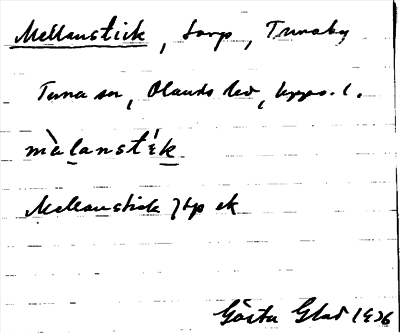 Mellanstick, torp, Trunsby
Tuna sn, Olands hd, Upps. l.
màlansték
Mellanstick jtp ek
Gösta Glad 1936